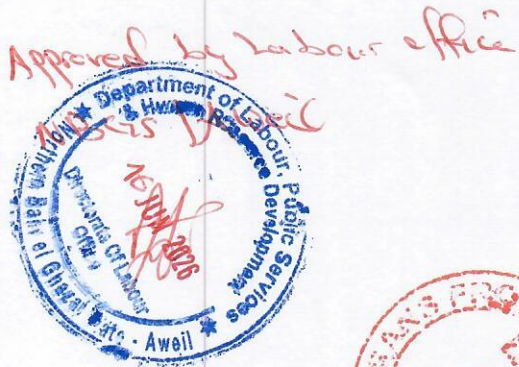 Approved by Labour office
NBGS Aweil
Department of Labour, Public Services
& Human Resource Development
Northern Bahr el Ghazal State - Aweil
Directorate Of Labour
Office
16 JUN 2026